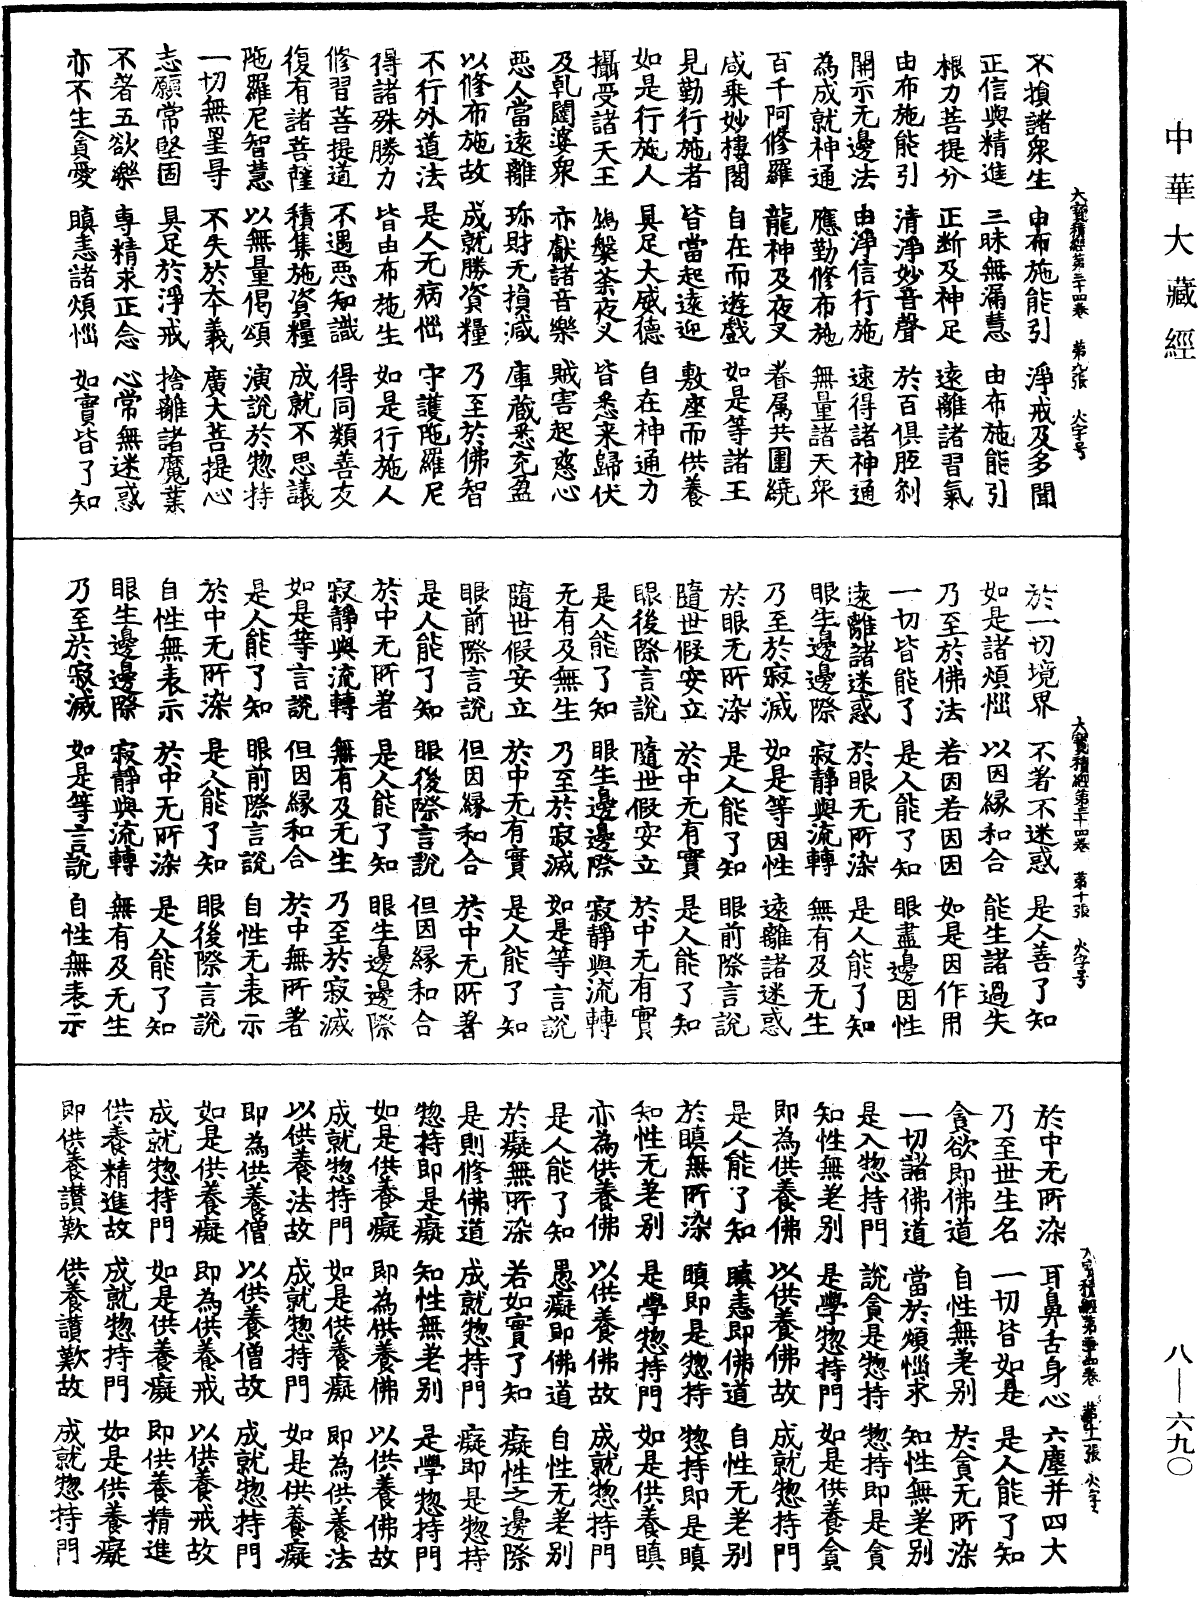 中華大藏經
不損諸衆生 由布施能引 淨戒及多聞
正信與精進 三昧無漏慧 由布施能引
根力菩提分 正断及神足 遠離諸習氣
由布施能引 清淨妙音聲 於百俱胝刹
開示无邊法 由淨信行施 速得諸神通
為成就神通 應勤修布施 無量諸天衆
百千阿修羅 龍神及夜叉 眷属共圍繞
咸乘妙樓閣 自在而遊戲 如是等諸王
見勤行施者 皆當起遠迎 敷座而供養
如是行施人 具足大威德 自在神通力
攝受諸天王 鳩槃荼夜叉 皆悉来歸伏
及乹闥婆衆 亦獻諸音樂 賊害起慈心
惡人當遠離 珎財无損減 庫藏悉充盈
以修布施故 成就勝資糧 乃至於佛智
不行外道法 是人无病惱 守護陁羅尼
得諸殊勝力 皆由布施生 如是行施人
修習菩提道 不遇惡知識 得同類善友
復有諸菩薩 積集施資糧 成就不思議
陁羅尼智慧 以無量偈頌 演說於惣持
一切無罣㝵 不失於本義 廣大菩提心
志願常堅固 具足於淨戒 捨離諸魔業
不著五欲樂 專精求正念 心常無迷惑
亦不生貪愛 瞋恚諸煩惱 如實皆了知
大寶積經第三十四卷 第九張 火字号
於一切境界 不著不迷惑 是人善了知
如是諸煩惱 以因緣和合 能生諸過失
乃至於佛法 若因若因因 如是因作用
一切皆能了 是人能了知 眼盡邊因性
遠離諸迷惑 於眼无所染 是人能了知
眼生邊邊際 寂靜與流轉 無有及无生
乃至於寂滅 如是等因性 遠離諸迷惑
於眼无所染 是人能了知 眼前際言說
隨世假安立 於中无有實 是人能了知
眼後際言說 隨世假安立 於中无有實
是人能了知 眼生邊邊際 寂靜與流轉
无有及無生 乃至於寂滅 如是等言說
隨世假安立 於中无有實 是人能了知
眼前際言說 但因緣和合 於中无所著
是人能了知 眼後際言說 但因緣和合
於中无所著 是人能了知 眼生邊邊際
寂靜與流轉 無有及无生 乃至於寂滅
如是等言說 但因緣和合 於中無所著
是人能了知 眼前際言說 自性无表示
於中无所染 是人能了知 眼後際言說
自性無表示 於中无所染 是人能了知
眼生邊邊際 寂靜與流轉 無有及无生
乃至於寂滅 如是等言說 自性無表示
大寶積經第三十四卷 第十張 火字号
於中无所染 耳鼻舌身心 六塵并四大
乃至世生名 一切皆如是 是人能了知
貪欲即佛道 自性無差別 於貪无所染
一切諸佛道 當於煩惱求 知性無差別
是入惣持門 說貪是惣持 惣持即是貪
知性無差別 是學惣持門 如是供養貪
即為供養佛 以供養佛故 成就惣持門
是人能了知 瞋恚即佛道 自性无差別
於瞋無所染 瞋即是惣持 惣持即是瞋
知性无差別 是學惣持門 如是供養瞋
亦為供養佛 以供養佛故 成就惣持門
是人能了知 愚癡即佛道 自性无差別
於癡無所染 若如實了知 癡性之邊際
是則修佛道 成就惣持門 癡即是惣持
惣持即是癡 知性無差別 是學惣持門
如是供養癡 即為供養佛 以供養佛故
成就惣持門 如是供養癡 即為供養法
以供養法故 成就惣持門 如是供養癡
即為供養僧 以供養僧故 成就惣持門
如是供養癡 即為供養戒 以供養戒故
成就惣持門 如是供養癡 即供養精進
供養精進故 成就惣持門 如是供養癡
即供養讃歎 供養讃歎故 成就惣持門
大寶積經第三十四卷 第十一張 火字号
八—六九〇